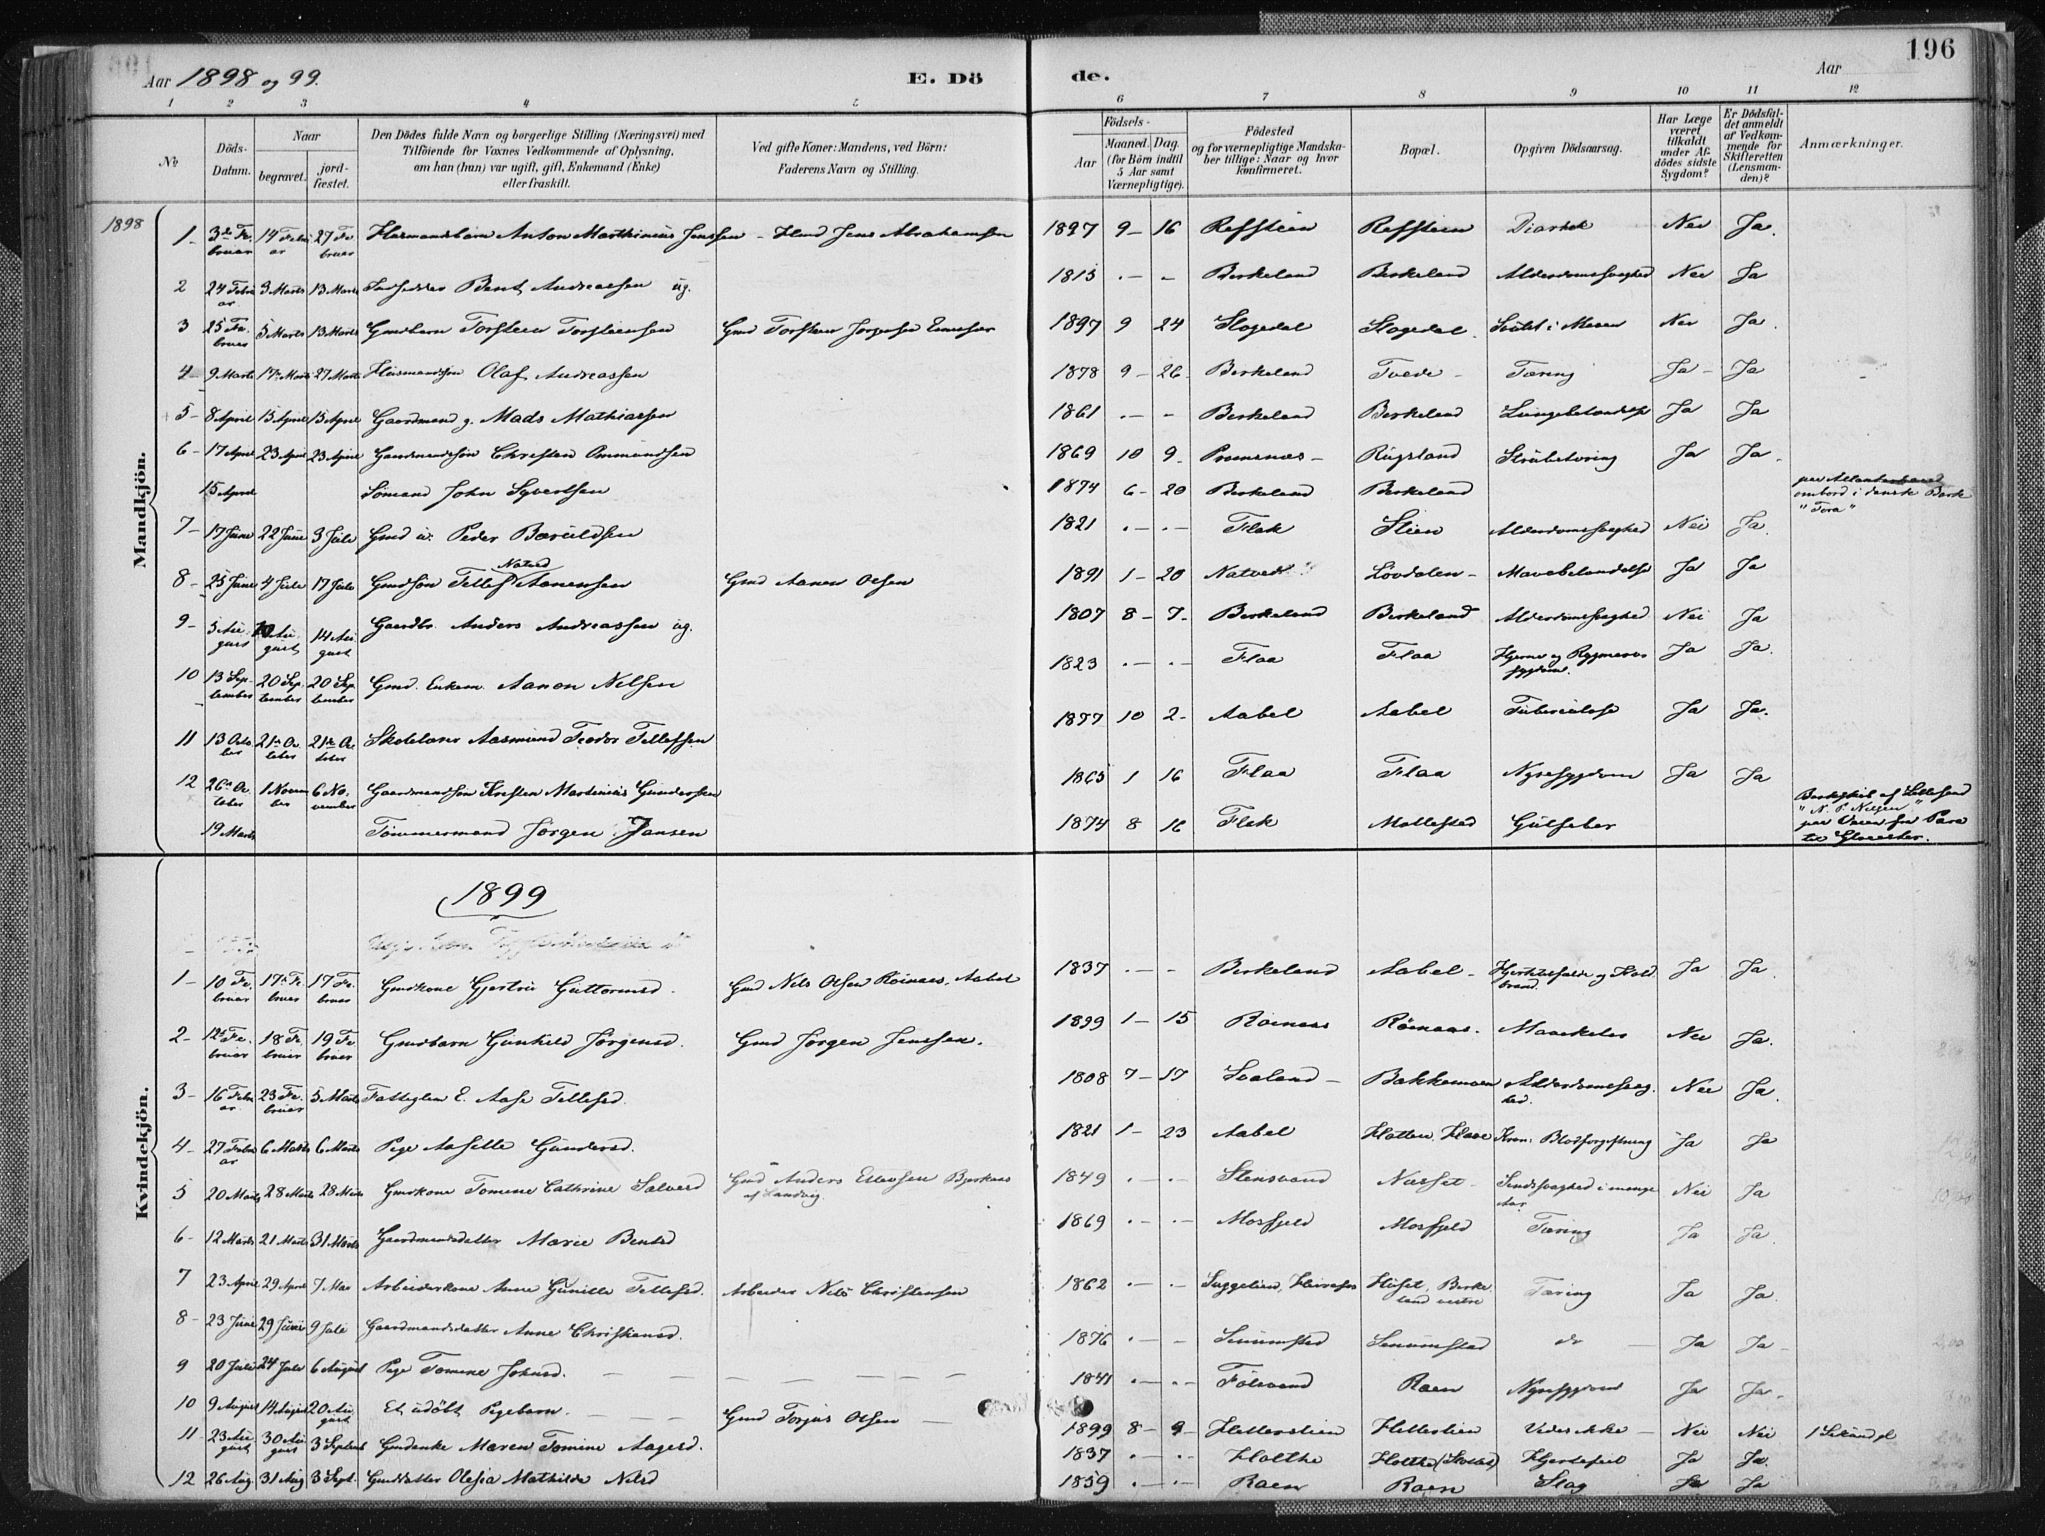 196
Aar 1898 og 99.
E. Dö
de.
Aar
1 2 3 4 5 6 7 8 9 10 11 12
No
Döds-Datum.
Naar
begravet.
jordfæstet.
Den Dödes fulde Navn og borgerlige Stilling (Næringsvei) med
Tilföiende for Voxnes Vedkommende af Oplysning,
om han (hun) var ugift, gift, Enkemand (Enke)
eller fraskilt.
Ved gifte Koner: Mandens, ved Börn:
Faderens Navn og Stilling.
Födsels-
Aar
Maaned. Dag.
(for Börn indtil
5 Aar samt
Værnepligtige).
Födested
og for værnepligtige Mandskaber tillige: Naar og hvor
konfirmeret.
Bopæl.
Opgiven Dödsaarsag.
Har Læge
været
tilkaldt
under Afdödes sidste
Sygdom?
Er Dödsfaldet anmeldt
af Vedkommende for
Skifteretten
(Lensmanden)?
Anmærkninger.
Mandkjön.
1898
1 - 3 Februar 14 Februar 27 Februar Husmandsbarn Anton Marthinius Jenssen - Husmd Jens Abrahamsen 1897 9 - 16 Refstein Refstein Diarhek Nei Ja.
2 24 Februar 3 Marts 13 Marts Bent Andreassen ug. 1815 Birkeland Birkeland Alderdomssvaghed Nei Ja
3 25 Februar 5 Marts 13 Marts Gmdbarn Torstein Torsteinsen Gmd Torstein Jorgensen 1897 9 24 Slogedal Slogedal. Nei Ja.
4 - 9 Marts 17 Marts 27 Marts Husmandssøn Olaf Andreassen 1878 9 - 26 Birkeland Tvede - Tæring Ja - Ja
5 - 8 April 15 April 15 April Gaardmand g. Mads Mathiassen 1861 Birkeland Birkeland Lungebetændelse Ja Ja
6 - 17 April 23 April 23 April Gaardmandssøn Christen Ommundsen 1869 10 9 Rugsland Strubetæring Ja Ja
15 April Sömand John Syvertsen 1874 6 - 20 Birkeland Birkeland paa Atlanterhavet
ombord i dansk Bark
"Tora"
7 - 17 Juni 22 Juni 3 Juli Gmd Peder Bæruldsen 1821 Flak Stien Alderdomssvaghed Nei Ja.
8 - 25 Juni 4 Juli 17 Juli Gmdsøn Tellef Aanensen Gmd Aanen Olsen 1891 1 - 20 Natved Lovdalen - Mavebetændelse Ja Ja
9 - 5 August 10 August 14 August Gaardbr. Anders Andreassen ug. 1807 8 - 7 Birkeland Birkeland Alderdomssvaghed Nei Ja
10 13 September 20 September 20 September Gmd. Enkem. Aanon Nilsen 1823 Flaa Flaa Hjerne og Rygmarvs
sygdom. Ja Ja.
11 13 October 21 October 21 October Skolelærer Aasmund Teodor Tellefsen 1877 10 2 Aabel Aabel Tuberculose Ja Ja.
12 26 October 1 November 6 November Gaardmandssøn Kristen Martinius Gundersen 1865 1 16 Flaa Flaa Nyresygdom Ja Ja
19 Marts Tömmermand Jörgen Jansen 1874 8 16 Flak Mollestad Gulfeber Barkskib af Lillesand
"N. P. Nilsen"
paa Veien fra Para
til
Kvindekjön.
1899
1 - 10 Februar 17 Februar 17 Februar Gmdkone Gjertru Guttormsd. Gmd Nils Olsen Roinaas, Aabel 1837 Birkeland Aabel - Hjertelidelse og Koldbrand. Ja Ja.
2 - 12 Februar 18 Februar 19 Februar Gmdbarn Gunhild Jörgensd. Gmd Jörgen Jenssen. 1899 1 - 15 Roinaas Röinaas. Nei Ja.
3 - 16 Februar 23 Februar 5 Marts Fattiglem E. Aase Tellefsd. 1808 7 - 17 Svaland - Bakkemoen Alderdomssvaghed. Nei Ja.
4 - 27 Februar 6 Marts 6 Marts Pige Aaselle Gundersd. 1821 1 - 23 Aabel Kron: Blodforgiftning Ja Ja
5 20 Marts 28 Marts 28 Marts Gmdkone Tomine Cathrine Salvesd Gmd Anders Ellevsen Bjerkaas
af Landvig 1849 Stensvand Næsset - Sindssvaghed i mange
Aar Nei Ja
6 - 12 Marts 21 Marts 31 Marts Gaardmandsdatter Marie Bentsd 1869 Mosfjeld Mosfjeld Tæring Ja Ja.
7 23 April 29 April 7 Mai Arbeiderkone Anne Gunille Tellefsd. Arbeider Nils Christensen 1862 Huset, Birkeland vestre Tæring Ja Ja.
8 - 23 Juni 29 Juni 9 Juli Gaardmandsdatter Anne Christiansd. 1876 Senumstad Senumstad do Ja Ja -
9 20 Juli 24 Juli 6 August Pige Tomine Johnsd. 1841 Fölevand Raen Nyresygdom Ja Ja -
10 9 August 14 August 20 August Et udöbt Pigebarn. Gmd Torjus Olsen 1899 8 - 9 Hellerslien Helleslien Vides ikke Nei Nei
11 - 23 August 30 August 3 Septemb Gmdenke Maren Tomine Aagesd. 1837 Holthe Holthe Hjertefeil Ja Ja.
12 26 Aug 31 Aug 3 Sept. Gmddatter Olesia Mathilde Nilsd 1859 Raen Raen Slag Ja Ja